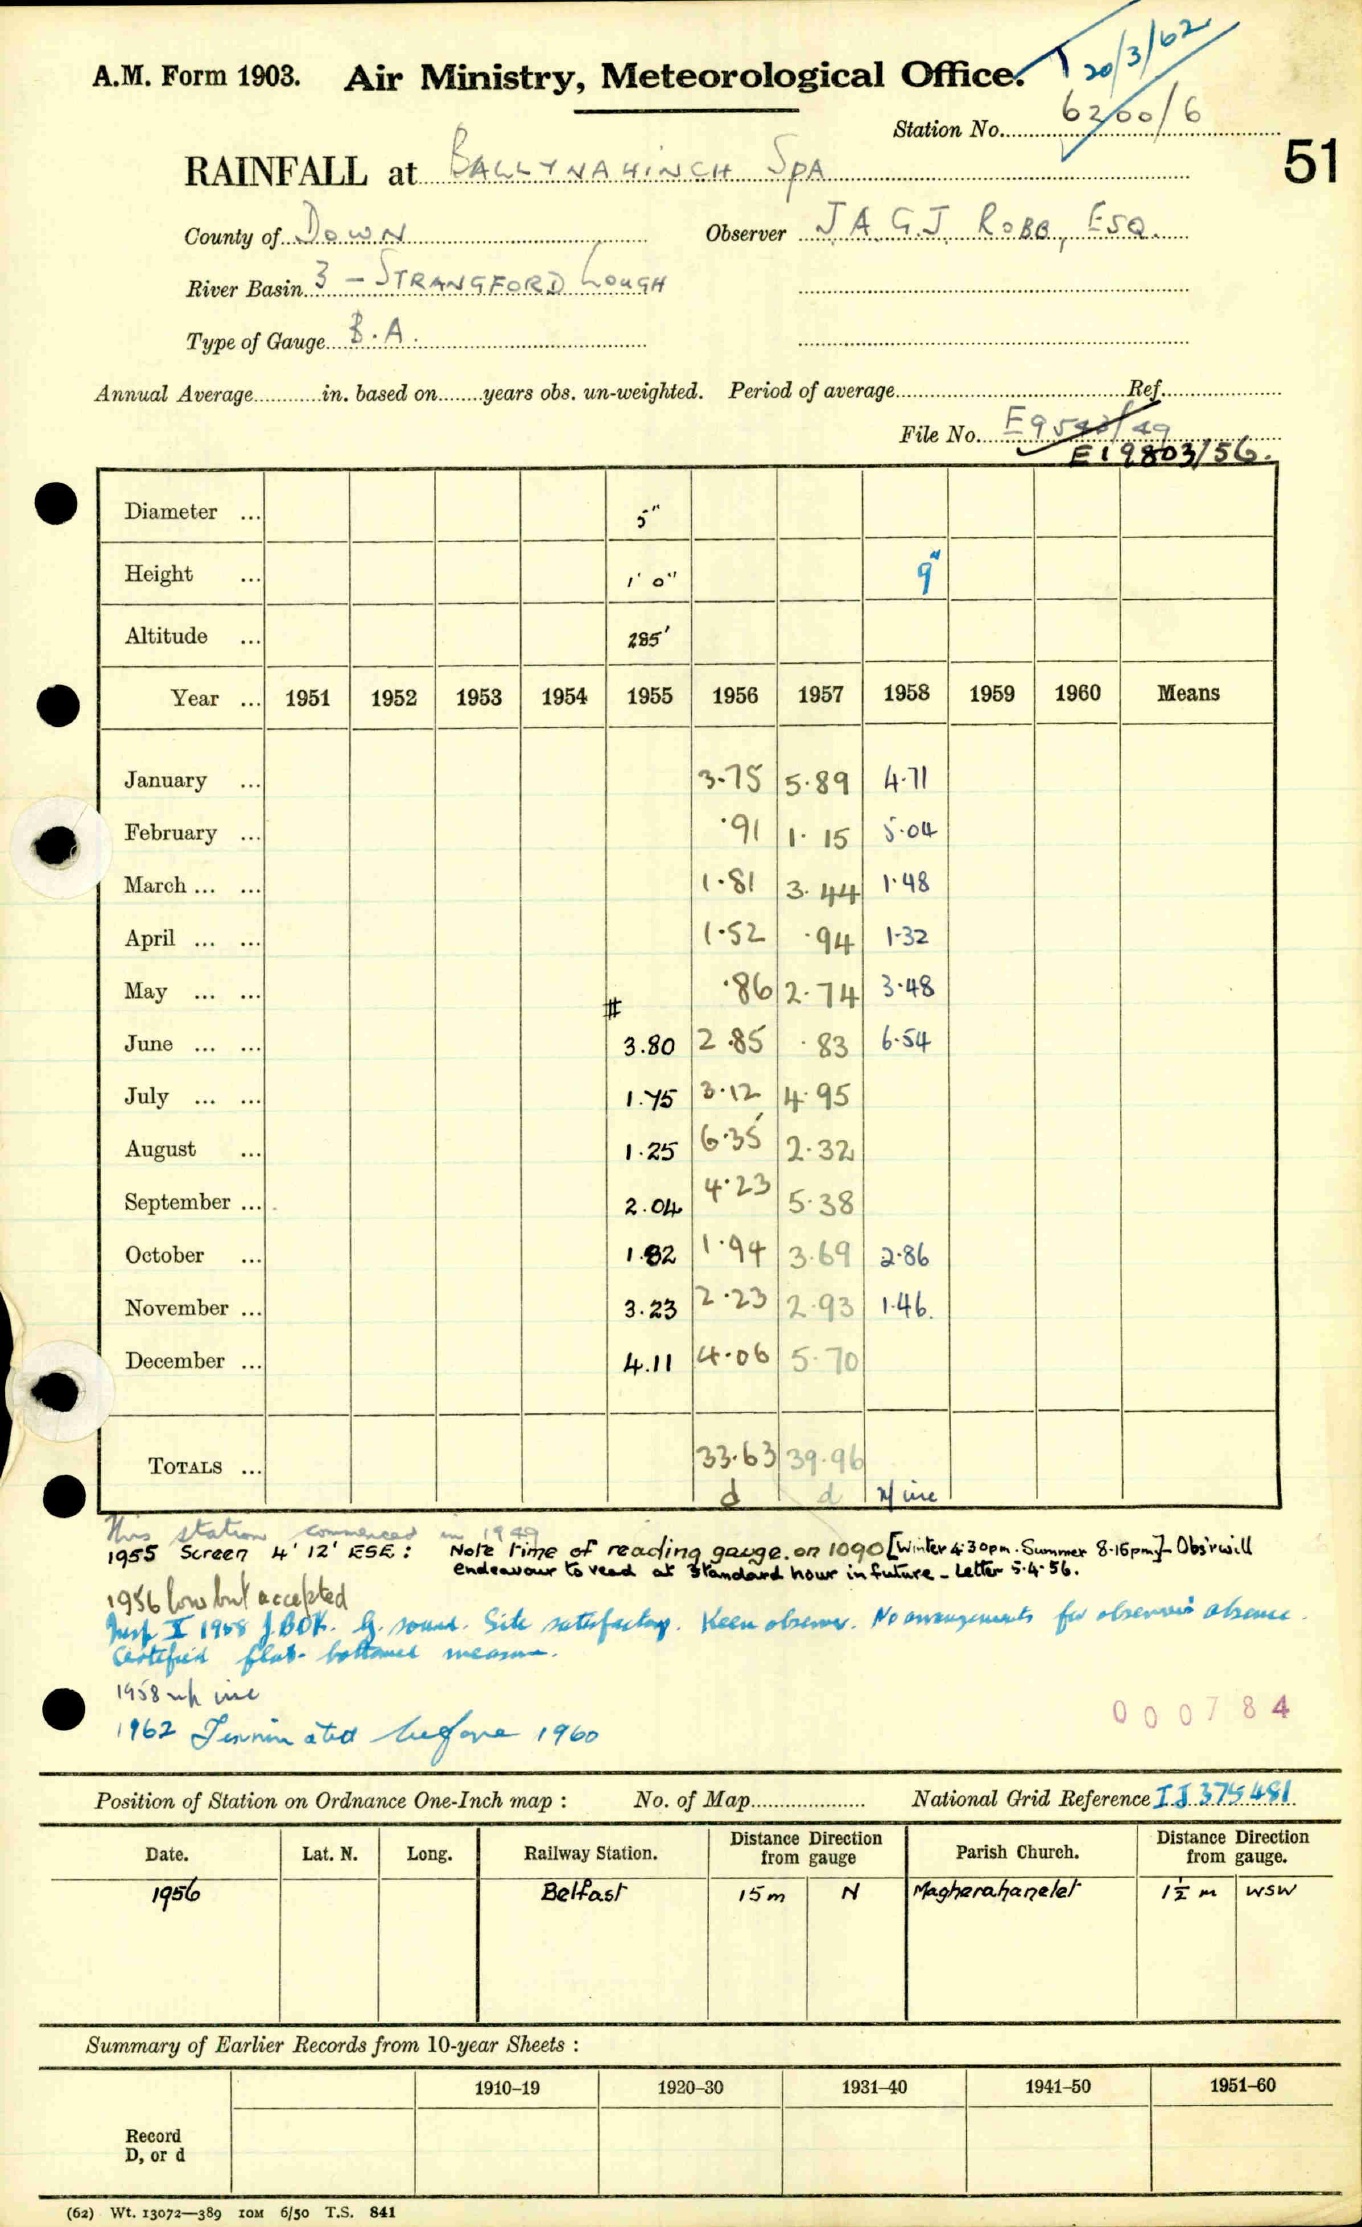 T 20/3/62
A.M. Form 1903. Air Ministry, Meteorological Office.
Station No. 6200/6
51
RAINFALL at BALLYNAHINCH SPA
County of DOWN Observer J.A.G.J. ROBB, ESQ.
River Basin 3 - STRANGFORD LOUGH
Type of Gauge B.A.
Annual Average in. based on years obs. un-weighted. Period of average Ref.
File No. E9543/49
E19803/56.
Diameter ... 5"
Height ... 1' 0" 9"
Altitude ... 285'
Year ... 1951 1952 1953 1954 1955 1956 1957 1958 1959 1960 Means
January ... 3.75 5.89 4.71
February ... .91 1.15 5.04
March ... ... 1.81 3.44 1.48
April ... ... 1.52 .94 1.32
May ... ... .86 2.74 3.48
#
June ... ... 3.80 2.85 .83 6.54
July ... ... 1.75 3.12 4.95
August ... 1.25 6.35 2.32
September ... 2.04 4.23 5.38
October ... 1.82 1.94 3.69 2.86
November ... 3.23 2.23 2.93 1.46.
December ... 4.11 4.06 5.70
TOTALS ... 33.63 39.96
d d inc
This station commenced in 1949
1955 Screen 4' 12' ESE: Note time of reading gauge on 1090 [Winter 4.30pm. Summer 8.15pm] - Obs'r will
endeavour to read at standard hour in future - Letter 5.4.56.
1956 low but accepted
Insp X 1958 J.BDK. G. sound. Site satisfactory. Keen observer. No arrangements for observer's absence.
Certified flat-bottomed measure.
1958 inc
1962 Terminated before 1960
000784
Position of Station on Ordnance One-Inch map : No. of Map National Grid Reference IJ 375481
Date. Lat. N. Long. Railway Station. Distance Direction from gauge Parish Church. Distance Direction from gauge.
1956 Belfast 15m N Magherahamlet 1½ m WSW
Summary of Earlier Records from 10-year Sheets :
1910–19 1920–30 1931–40 1941–50 1951–60
Record
D, or d
(62) Wt. 13072—389 10M 6/50 T.S. 841